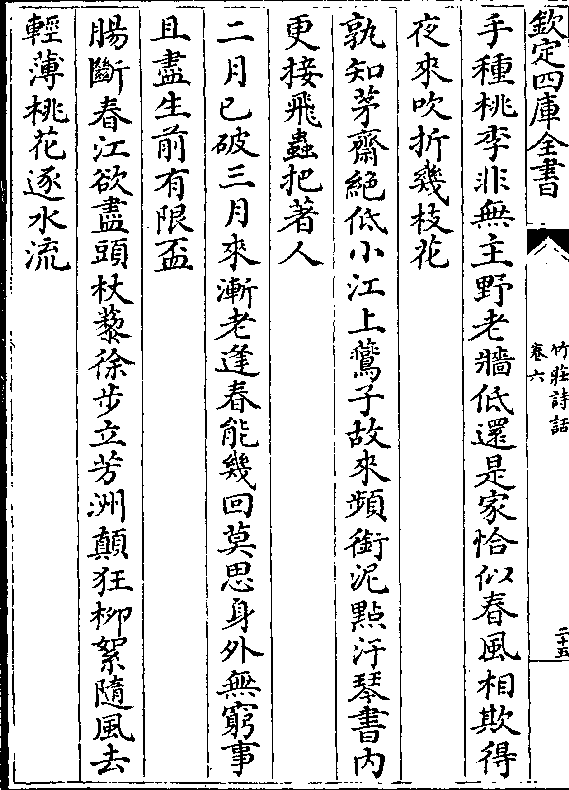 欽定四庫全書
竹莊詩話
卷六
二十五
手種桃李非無主野老牆低還是家恰似春風相欺得
夜來吹折幾枝花
孰知茅齋絕低小江上鷰子故來頻銜泥點汙琴書內
更接飛蟲把著人
二月已破三月來漸老逢春能幾回莫思身外無窮事
且盡生前有限盃
腸斷春江欲盡頭杖藜徐步立芳洲顛狂柳絮隨風去
輕薄桃花逐水流